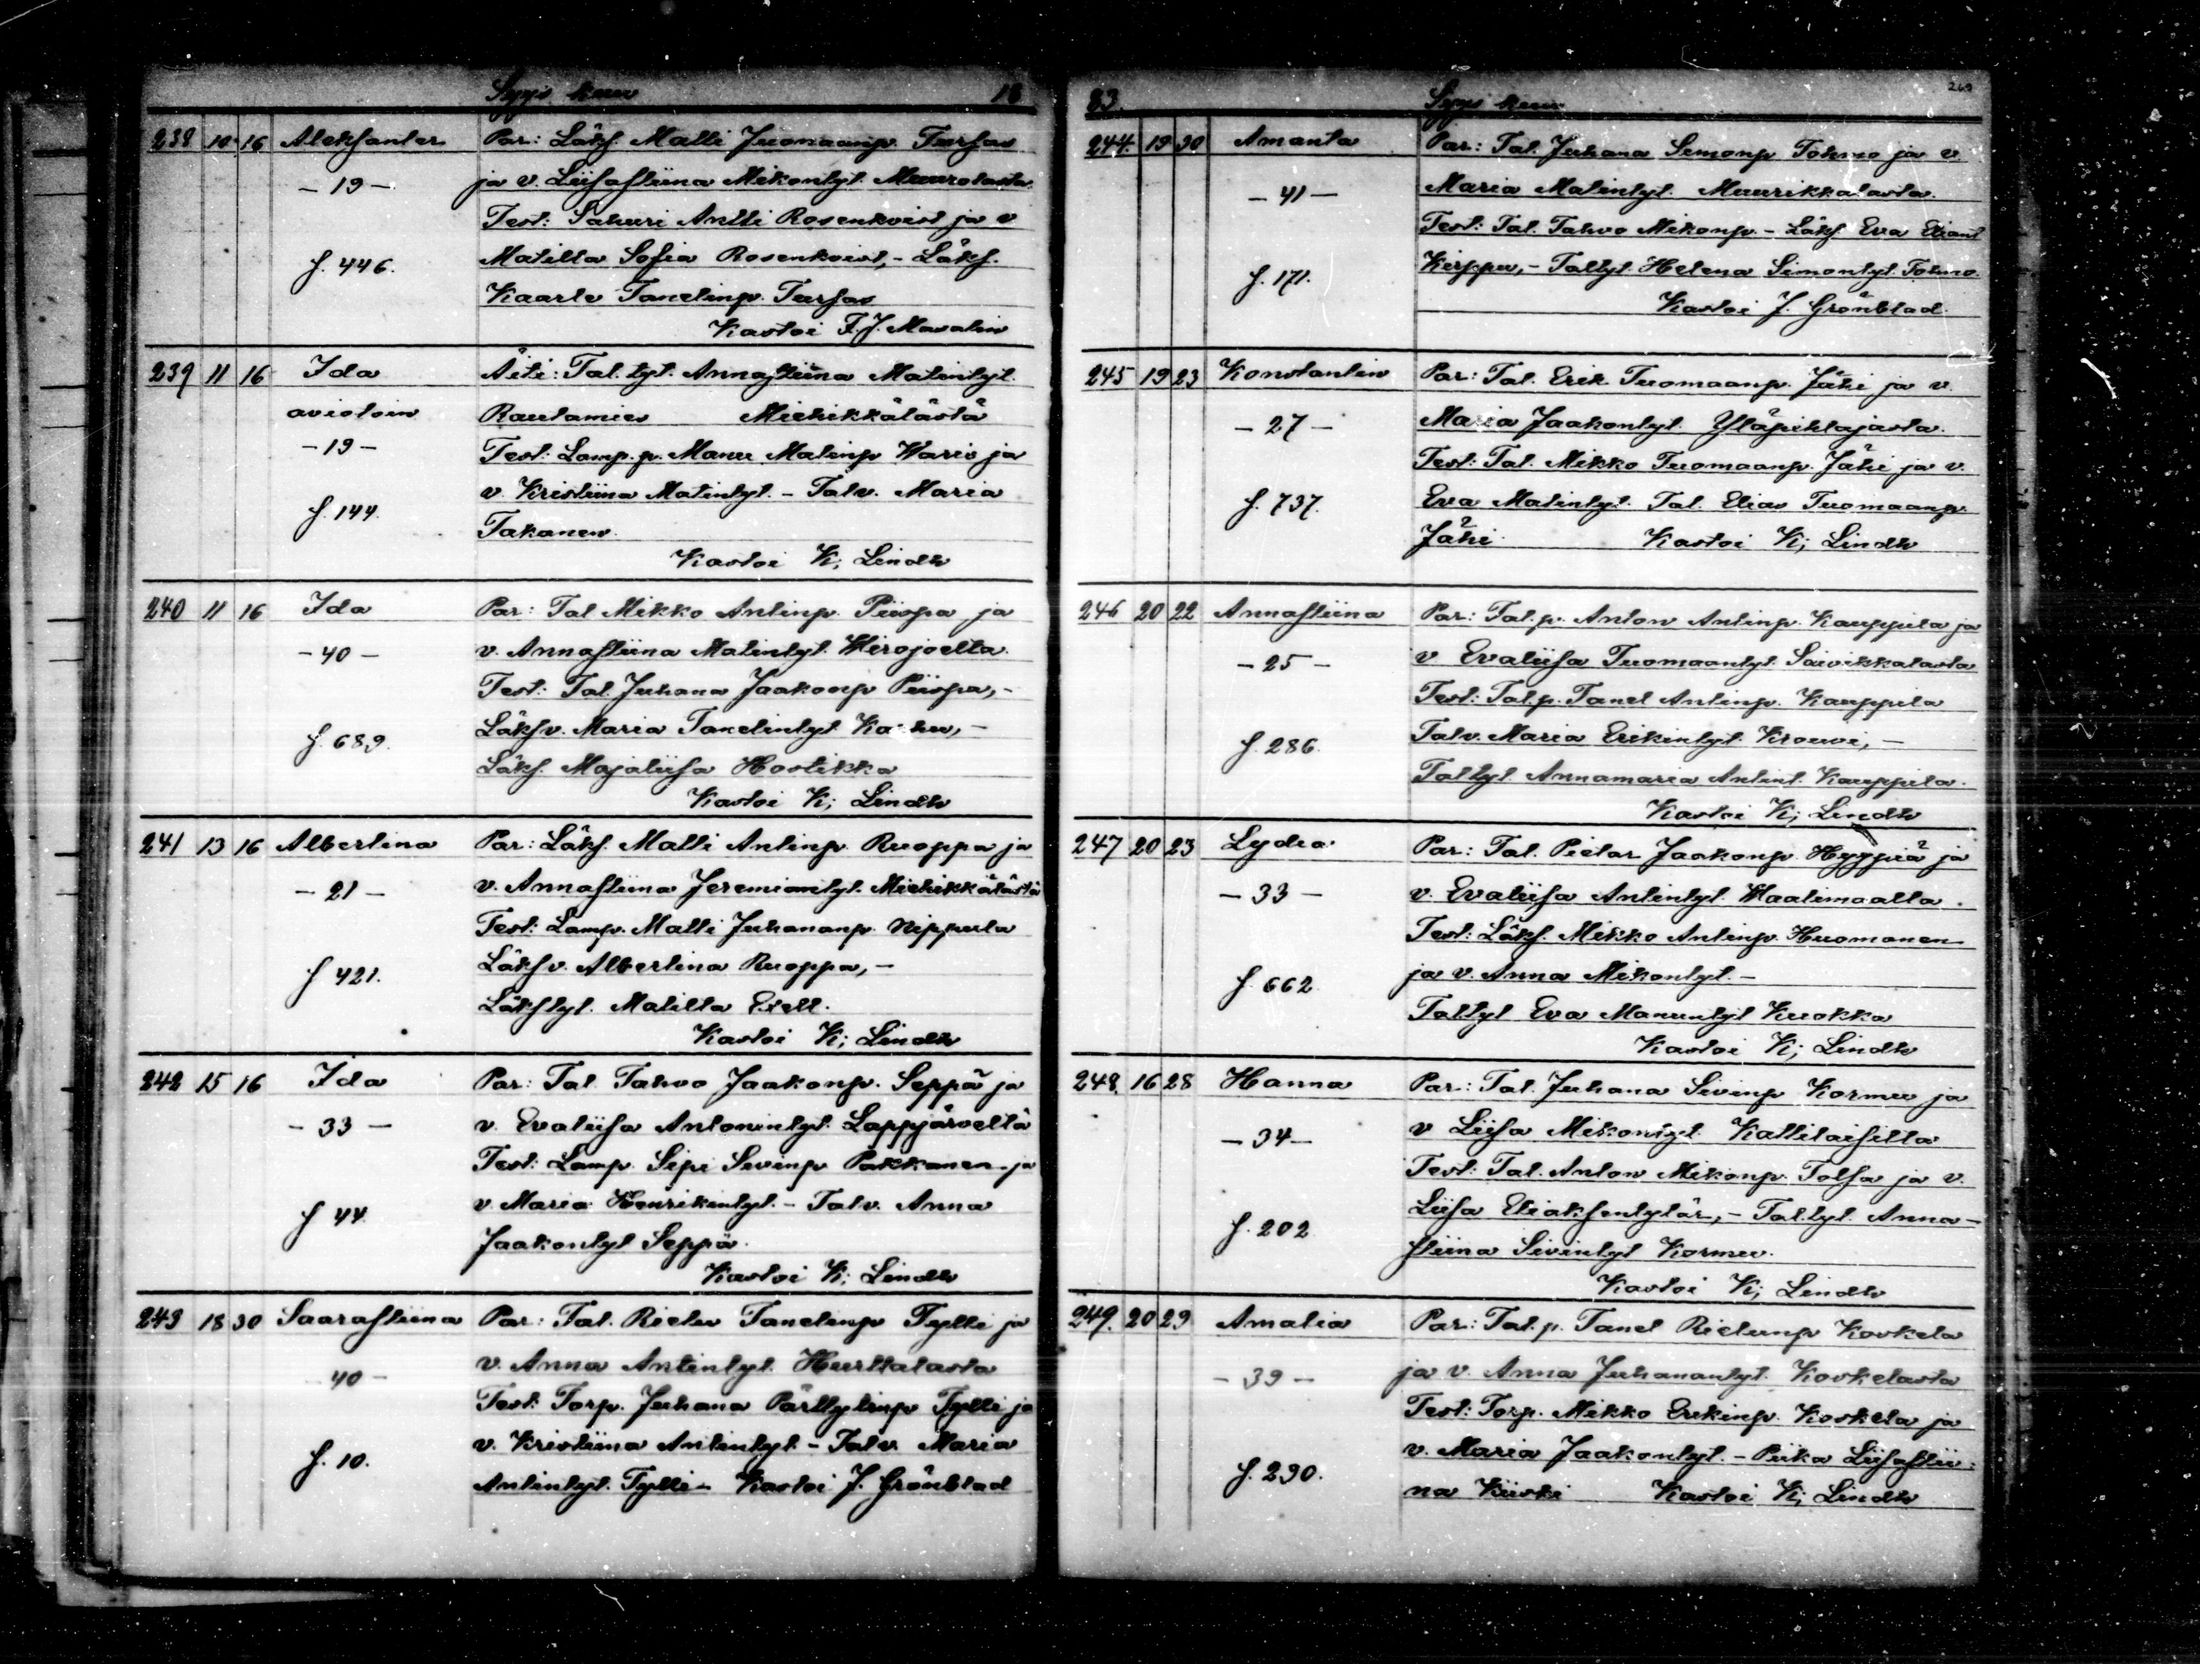 Syys kuu 18
238 10 16 Aleksanter Par: Läks. Matti Tuomaanp. Tursas
- 19 - ja v. Liisastiina Mikontyt. Muurolasta
Test: Suhuri Antti Rosenkvist ja v
f. 446. Matilta Sofia Rosenkvist, - Läks.
Kaarlo Tanelinp. Tursas
Kastoi F. J. Masalin
239 11 16 Ida Äiti: Tal. tyt. Annastiina Matintyt.
aviotoin Rautamies Miehikkälästä
- 19 - Test: Lamp. p. Manu Matinp Waris ja
f. 144. v. Kristiina Matintyt. - Talv. Maria
Takanen.
Kastoi K; Lindh
240 11 16 Ida Par: Tal Mikko Antinp. Piispa ja
- 40 - v. Annastiina Matintyt. Wirojoelta.
Test: Tal. Juhana Jaakonp Piispa, -
f. 689. Läksv. Maria Tanelintyt -
Läks. Majaliisa Hostikka
Kastoi K; Lindh
241 13 16 Albertina Par: Läks. Matti Antinp. Ruoppa ja
- 21 - v. Annastiina Jeremiantyt. Miehikkälästä
Test: Lamp. Matti Juhananp. Nippula
f 421. Läksv. Albertina Ruoppa, -
Läkstyt. Matilta
Kastoi K; Lindh
242 15 16 Ida Par: Tal. Tahvo Jaakonp. Seppä ja
- 33 - v. Evaliisa Antonintyt. Lappjärveltä
Test: Lamp. Sipi Sivinp Pakkanen ja
f 44. v. Maria Henrikintyt. - Talv. Anna
Jaakontyt Seppä.
Kastoi K; Lindh
243 18 30 Saarastiina Par: Tal. Rietu Tanelinp Tylli ja
40 - v. Anna Antintyt. Hurttalasta
Test: Torp. Juhana Pärttylinp Tylli ja
f. 10. v. Kristiina Antintyt - Talv. Maria
Antintyt. Tylli - Kastoi J. Grönblad
83. Syys kuu 269
244. 19 30 Amanta Par: Tal. Juhana Simonp Tohmo ja v.
- 41 - Maria Matintyt. Muurikkalasta.
Test: Tal. Tahvo Mikonp. - Läks. Eva Eliant
f. 171. Kirppu, - Taltyt. Helena Simontyt. Tohmo.
Kastoi J. Grönblad.
245 19 23 Konstantin Par: Tal. Erik Tuomaanp. Jähi ja v.
- 27 - Maria Jaakontyt. Yläpihlajasta.
Test: Tal. Mikko Tuomaanp. Jähi ja v.
f. 737. Eva Matintyt. Tal. Elias Tuomaanp.
Jähi. Kastoi K; Lindh
246 20 22 Annastiina Par: Tal. p. Anton Antinp. Kauppila ja
- 25 - v Evaliisa Tuomaantyt. Saivikkalasta
Test: Tal. p. Tanel Antinp. Kauppila
f. 286. Talv. Maria Erikintyt. Krouvi, -
Taltyt Annamaria Antint. Kauppila.
Kastoi K; Lindh
247 20 23 Lydia Par: Tal. Pietar Jaakonp. Hyyppiä ja
- 33 - v. Evaliisa Antintyt. Waalimaalta.
Test: Läks. Mikko Antinp. Huomanen
f. 662 ja v. Anna Mikontyt. -
Tal.tyt Eva Manuntyt Kuokka
Kastoi K; Lindh
248. 16 28 Hanna Par: Tal. Juhana Sivinp Kormu ja
- 34 - v Liisa Mikontyt. Kallilaisilta
Test: Tal. Anton Mikonp. Tolsa ja v.
f. 202. Liisa Eliaksentytär, - Tal.tyt. Anna-
stiina Sivintyt Kormu.
Kastoi K; Lindh
249. 20 29 Amalia Par: Tal. p. Tanel Rietunp Koskela
- 39 - ja v. Anna Juhanantyt. Koskelasta
Test: Torp. Mikko Erikinp. Koskela ja
f. 290. v. Maria Jaakontyt. - Piika Liisastii-
na Kiiski Kastoi K; Lindh